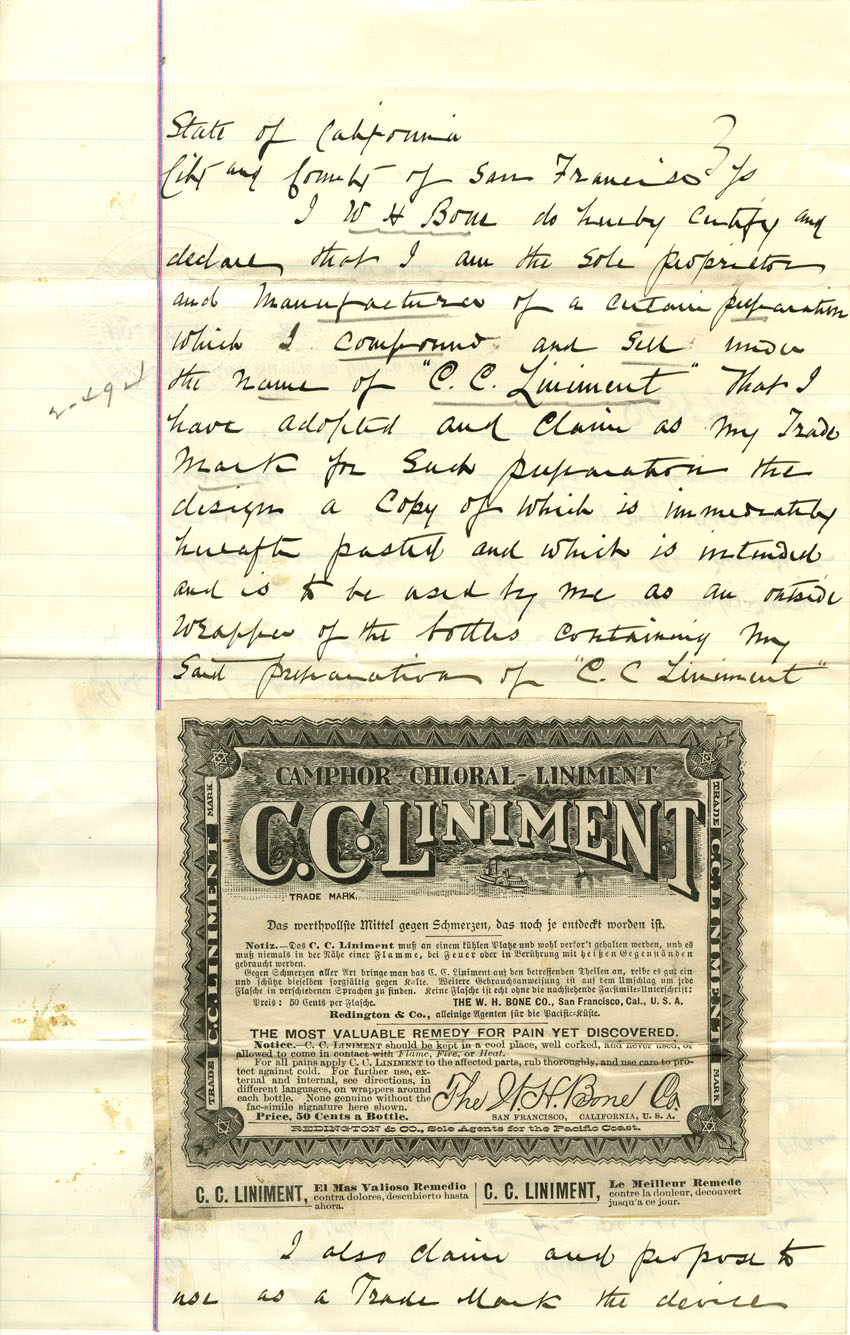 State of California
City and County of San Francisco } ss
I W H Bone do hereby certify and
declare that I am the sole proprietor
and manufacturer of a certain preparation
which I compound and sell under
the name of "C. C. Liniment" That I
have adopted and claim as my Trade
Mark for such preparation the
design a copy of which is immediately
hereafter pasted and which is intended
and is to be used by me as an outside
wrapper of the bottles containing my
said preparation of "C. C Liniment"
2494
CAMPHOR-CHLORAL-LINIMENT
C.C. LINIMENT
TRADE MARK.
TRADE C.C. LINIMENT MARK
TRADE C.C. LINIMENT MARK
Das werthvollste Mittel gegen Schmerzen, das noch je entdeckt worden ist.
Notiz.—Das C. C. Liniment muß an einem kühlen Platze und wohl verkor't gehalten werden, und es
muß niemals in der Nähe einer Flamme, bei Feuer oder in Berührung mit heißen Gegenständen
gebraucht werden.
Gegen Schmerzen aller Art bringe man das C. C. Liniment auf den betreffenden Theilen an, reibe es gut ein
und schütze dieselben sorgfältig gegen Kälte. Weitere Gebrauchsanweisung ist auf dem Umschlag um jede
Flasche in verschiedenen Sprachen zu finden. Keine Flasche ist echt ohne die nachstehende Facsimile-Unterschrift:
Preis: 50 Cents per Flasche. THE W. H. BONE CO., San Francisco, Cal., U. S. A.
Redington & Co., alleinige Agenten für die Pacific-Küste.
THE MOST VALUABLE REMEDY FOR PAIN YET DISCOVERED.
Notice.—C. C. LINIMENT should be kept in a cool place, well corked, and never used, or
allowed to come in contact with Flame, Fire, or Heat.
For all pains apply C. C. LINIMENT to the affected parts, rub thoroughly, and use care to pro-
tect against cold. For further use, ex-
ternal and internal, see directions, in
different languages, on wrappers around
each bottle. None genuine without the
fac-simile signature here shown.
Price, 50 Cents a Bottle.
The W. H. Bone Co.
SAN FRANCISCO, CALIFORNIA, U. S. A.
REDINGTON & CO., Sole Agents for the Pacific Coast.
C. C. LINIMENT, El Mas Valioso Remedio
contra dolores, descubierto hasta
ahora.
C. C. LINIMENT, Le Meilleur Remede
contre la douleur, decouvert
jusqu'a ce jour.
I also claim and propose to
use as a Trade Mark the device